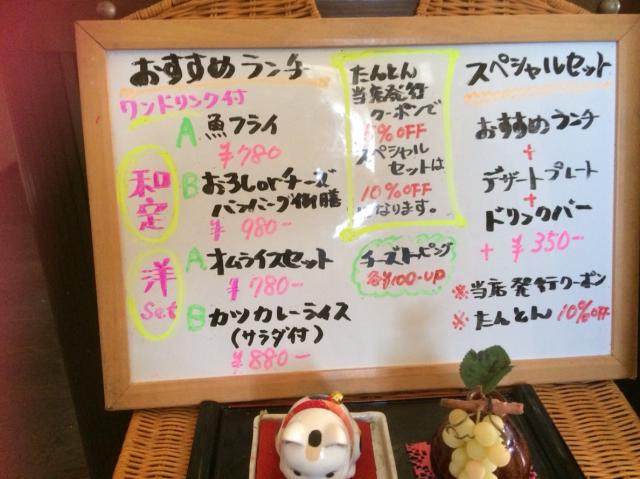 おすすめランチ
ワンドリンク付
和定
A 魚フライ
¥780
B おろしorチーズ
ハンバーグ御膳
¥980-
洋
Set
A オムライスセット
¥780-
B カツカレーライス
(サラダ付)
¥880-
たんとん
当店発行
クーポンで
5%OFF
スペシャル
セットは
10%OFF
になります。
チーズトッピング
各¥100-UP
スペシャルセット
おすすめランチ
+
デザートプレート
+
ドリンクバー
+ ¥350-
※当店発行クーポン
※たんとん 10%OFF